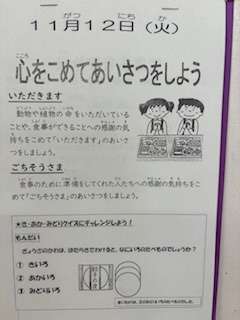 １１月１２日（火）
心をこめてあいさつをしよう
いただきます
動物や植物の命をいただいている
ことや、食事ができることへの感謝の気
持ちをこめて「いただきます」のあいさ
つをしましょう。
ごちそうさま
食事のために準備をしてくれた人たちへの感謝の気持ちをこ
めて「ごちそうさま」のあいさつをしましょう。
★き・あか・みどりクイズにチャレンジしよう！
もんだい
ぎょうざのかわは、はたらきでわけると、なにいろのたべものでしょうか？
① きいろ
② あかいろ
③ みどりいろ